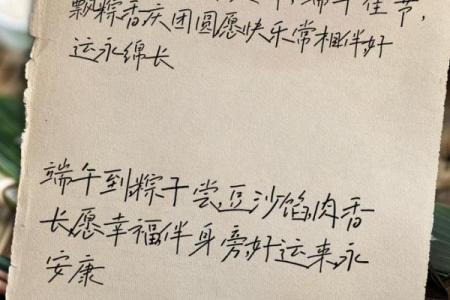 端午佳节,
飘粽香庆团圆愿快乐常相伴好
运永绵长
端午到粽子尝,豆沙馅,肉香
长,愿幸福伴身旁,好运来,永
安康